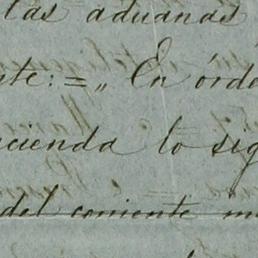 las aduanas
ste: = „ En órde
cienda lo sig
del corriente m